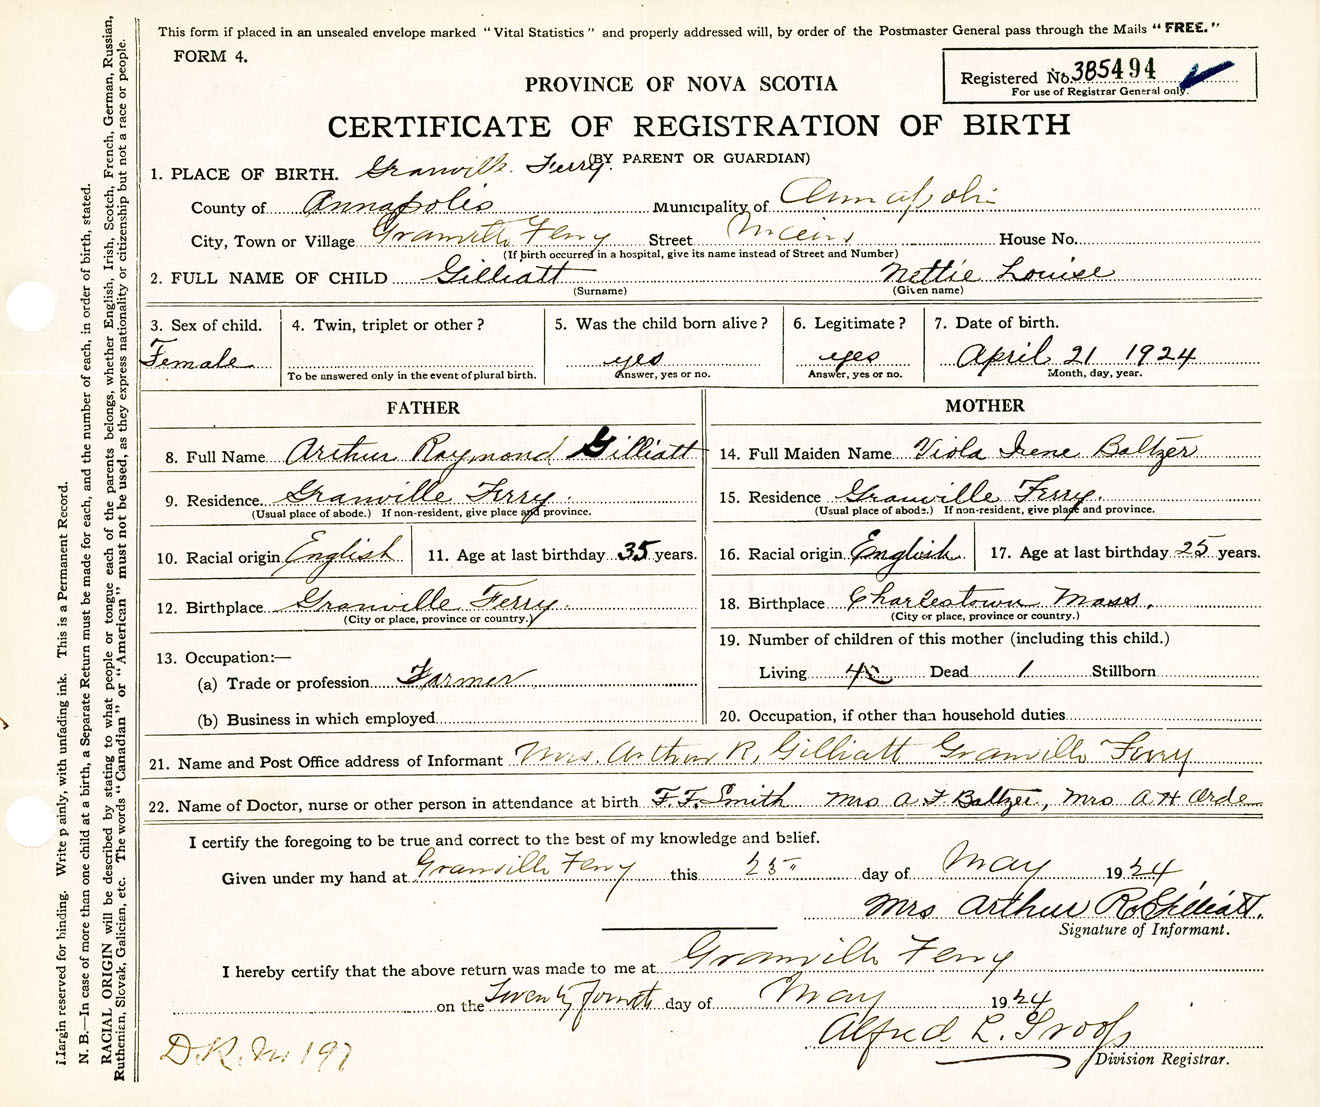 This form if placed in an unsealed envelope marked "Vital Statistics" and properly addressed will, by order of the Postmaster General pass through the Mails "FREE."
FORM 4.
Registered No. 385494
For use of Registrar General only.
PROVINCE OF NOVA SCOTIA
CERTIFICATE OF REGISTRATION OF BIRTH
(BY PARENT OR GUARDIAN)
1. PLACE OF BIRTH. Granville Ferry.
County of Annapolis Municipality of Annapolis
City, Town or Village Granville Ferry Street Main House No.
(If birth occurred in a hospital, give its name instead of Street and Number)
2. FULL NAME OF CHILD Gilliatt Nettie Louise
(Surname) (Given name)
3. Sex of child. 4. Twin, triplet or other? 5. Was the child born alive? 6. Legitimate? 7. Date of birth.
Female yes yes April 21 1924
To be answered only in the event of plural birth. Answer, yes or no. Answer, yes or no. Month, day, year.
FATHER
8. Full Name Arthur Raymond Gilliatt
9. Residence Granville Ferry.
(Usual place of abode.) If non-resident, give place and province.
10. Racial origin English 11. Age at last birthday 35 years.
12. Birthplace Granville Ferry.
(City or place, province or country.)
13. Occupation:—
(a) Trade or profession Farmer
(b) Business in which employed
MOTHER
14. Full Maiden Name Viola Irene Baltzer
15. Residence Granville Ferry.
(Usual place of abode.) If non-resident, give place and province.
16. Racial origin English 17. Age at last birthday 25 years.
18. Birthplace Charlestown Mass.
(City or place, province or country.)
19. Number of children of this mother (including this child.)
Living 4 Dead 1 Stillborn
20. Occupation, if other than household duties
21. Name and Post Office address of Informant Mrs. Arthur R. Gilliatt Granville Ferry
22. Name of Doctor, nurse or other person in attendance at birth F. F. Smith Mrs A F Baltzer, Mrs A H Orde
I certify the foregoing to be true and correct to the best of my knowledge and belief.
Given under my hand at Granville Ferry this 25" day of May 1924
Mrs Arthur R. Gilliatt.
Signature of Informant.
I hereby certify that the above return was made to me at Granville Ferry
on the Twenty fourth day of May 1924
Alfred L. Troop
Division Registrar.
D.R. No 197
Margin reserved for binding. Write plainly, with unfading ink. This is a Permanent Record.
N. B.—In case of more than one child at a birth, a Separate Return must be made for each, and the number of each, in order of birth, stated.
RACIAL ORIGIN will be described by stating to what people or tongue each of the parents belongs, whether English, Irish, Scotch, French, German, Russian,
Ruthenian, Slovak, Galician, etc. The words "Canadian" or "American" must not be used, as they express nationality or citizenship but not a race or people.